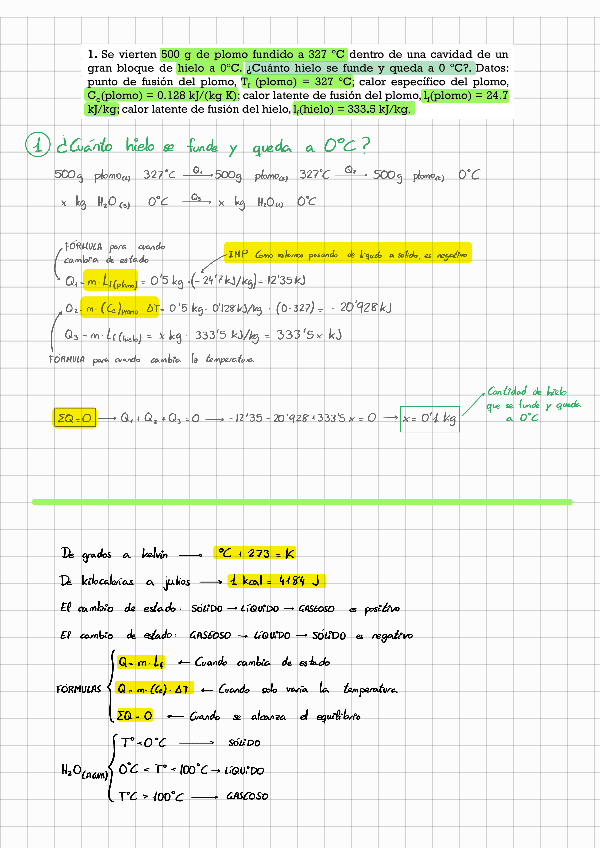 1. Se vierten 500 g de plomo fundido a 327 °C dentro de una cavidad de un
gran bloque de hielo a 0°C. ¿Cuánto hielo se funde y queda a 0 °C?. Datos:
punto de fusión del plomo, Tf (plomo) = 327 °C; calor específico del plomo,
Ce(plomo) = 0.128 kJ/(kg K); calor latente de fusión del plomo, lf(plomo) = 24.7
kJ/kg; calor latente de fusión del hielo, lf(hielo) = 333.5 kJ/kg.
1 ¿Cuánto hielo se funde y queda a 0°C?
500g plomo(l) 327°C —Q1→ 500g plomo(s) 327°C —Q2→ 500g plomo(s) 0°C
x kg H2O(s) 0°C —Q3→ x kg H2O(l) 0°C
FÓRMULA para cuando
cambia de estado
IMP Como estamos pasando de líquido a sólido, es negativo
Q1 = m · Lf(plomo) = 0'5 kg · (-24'7 kJ/kg) = -12'35 kJ
Q2 = m · (Ce)plomo · ΔT = 0'5 kg · 0'128 kJ/kg · (0-327) = -20'928 kJ
Q3 = m · Lf(hielo) = x kg · 333'5 kJ/kg = 333'5x kJ
FÓRMULA para cuando cambia la temperatura
ΣQ=0 → Q1 + Q2 + Q3 = 0 → -12'35 - 20'928 + 333'5 x = 0 → x = 0'1 kg
Cantidad de hielo
que se funde y queda
a 0°C
De grados a kelvin → °C + 273 = K
De kilocalorías a julios → 1 kcal = 4184 J
El cambio de estado: SÓLIDO → LÍQUIDO → GASEOSO es positivo
El cambio de estado: GASEOSO → LÍQUIDO → SÓLIDO es negativo
FÓRMULAS
Q = m · Lf ← Cuando cambia de estado
Q = m · (Ce) · ΔT ← Cuando solo varía la temperatura
ΣQ = 0 ← Cuando se alcanza el equilibrio
H2O(AGUA)
T° < 0°C → SÓLIDO
0°C < T° < 100°C → LÍQUIDO
T°C > 100°C → GASEOSO